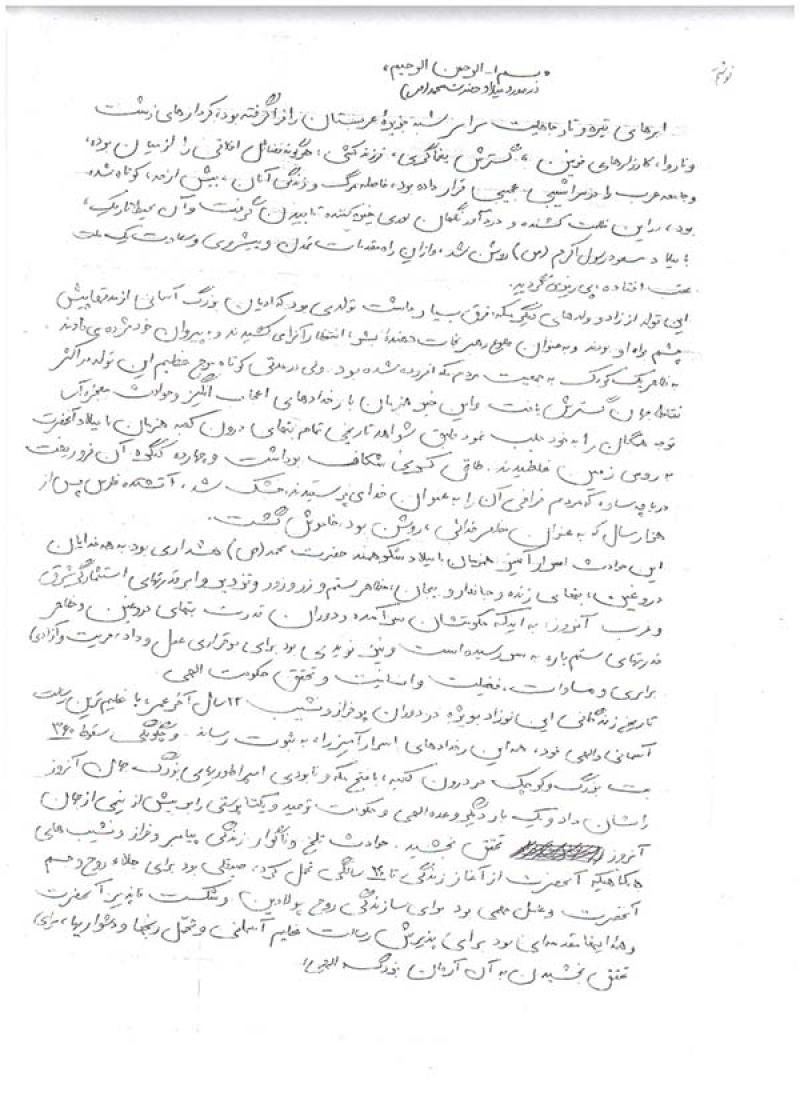 بسم ا... الرحمن الرحیم
در مورد میلاد حضرت محمد (ص)
ابرهای تیره و تار جاهلیت سراسر شبه جزیرهٔ عربستان را فرا گرفته بود، کردارهای زشت
و ناروا، کارزارهای خونین، گسترش یغماگری، فرزندکشی، هرگونه فضائل اخلاقی را از میان بوده،
و جامعه عرب را در سراشیبی عجیبی قرار داده بود، فاصله مرگ و زندگی آنان، بیش از حد، کوتاه شده
بود، در این کشنده و دردآور ناگهان نوری خیره کننده تابیدن گرفت و آن محیط تاریک،
با میلاد مسعود رسول اکرم (ص) روشن شد، و از این راه مقدمات تمدن و پیشروی و سعادت یک ملت
عقب افتاده پی ریزی گردید.
این تولد از زاد و ولدهای دیگر یک فرق بسیار داشت تولدی بود که ادیان بزرگ آسمانی از مدتها پیش
چشم براه او بودند و به عنوان رهبر نجات دهندهٔ بشر، انتظارا کرای کشیدند و به پیروان خود مژده می دادند
به ظاهر یک کودک به جمعیت مردم مکه افزوده شده بود. ولی در مدتی کوتاه موج عظیم این تولد در اکثر
نقاط جهان گسترش یافت و این خبر همزمان با رخدادهای اعجاب انگیز و حوادث معجزه آسا
توجه همگان را به خود جلب نمود طبق شواهد تاریخی تمام بتهای درون کعبه همزمان با میلاد آنحضرت
به روی زمین غلطیدند. طاق کسری شکاف برداشت و چهارده کنگره آن فرو ریخت
دریاچه ساوه که مردم آن را به عنوان خدای پرستیدند خشک شد. آتشکده فارس پس از
هزار سال که به عنوان مظهر خدائی، روشن بود، خاموش گشت.
این حوادث اسرارآمیز همزمان با میلاد شکوهمند حضرت محمد (ص) هشداری بود به همه خدایان
دروغین، بتهای زنده و جاندار و بیجان، مظاهر ستم و زر و زور و تزویر و ابرقدرتهای استثمارگر شرق
و غرب آنروز، به اینکه حکومتشان سرآمده و دوران قدرت بتهای دروغین و مظاهر
قدرتهای ستم باره به سر رسیده است و نیز نویدی بود برای برقراری عدل و داد، حریت و آزادی
برابری و مساوات، فضیلت و انسانیت و تحقق حکومت الهی.
تاریخ زندگانی این نوزاد بویژه در دوران پر فراز و نشیب ۲۳ سال آخر عمر، با عظیم ترین رسالت
آسمانی و الهی خود، همه این رخدادهای اسرارآمیز را، به ثبوت رساند و چگونگی سقوط ۳۶۰
بت بزرگ و کوچک در درون کعبه، با فتح مکه و نابودی امپراطوریهای بزرگ جهان آنروز
را نشان داد و یک بار دیگر وعده الهی و حکومت توحید و یکتاپرستی را بر بیش از نیمی از جهان
آنروز تحقق بخشید. حوادث تلخ و ناگوار زندگی پیامبر و فراز و نشیب های
که آنحضرت از آغاز زندگی تا ۴۰ سالگی تحمل کرد، صیقلی بود برای جلاء روح و جسم
آنحضرت و عامل مهمی بود برای سازندگی روح پولادین و شکست ناپذیر آنحضرت
و همه اینها مقدمه ای بود برای پذیرش رسالت عظیم آسمانی و تحمل رنجها و دشواریها، برای
تحقق بخشیدن به آن آرمان بزرگ الهی